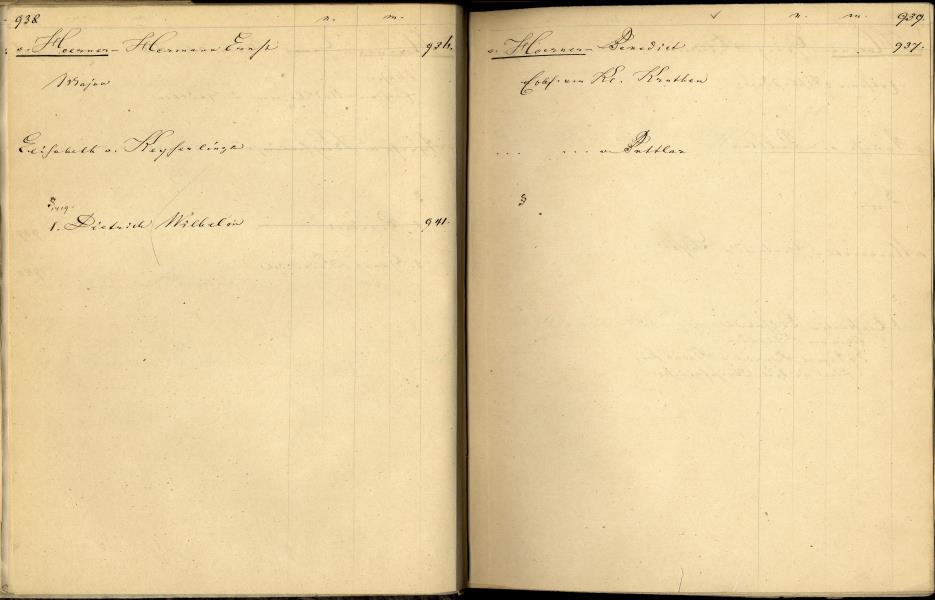 938 n. m.
v. Hoerner - Hermann Ernst 934.
Major
Elisabeth v. Keyserlingk
§
1. Dietrich Wilhelm 941.
n. m. 939.
v. Hoerner - Benedict 937.
... ... v. Puttlar
§